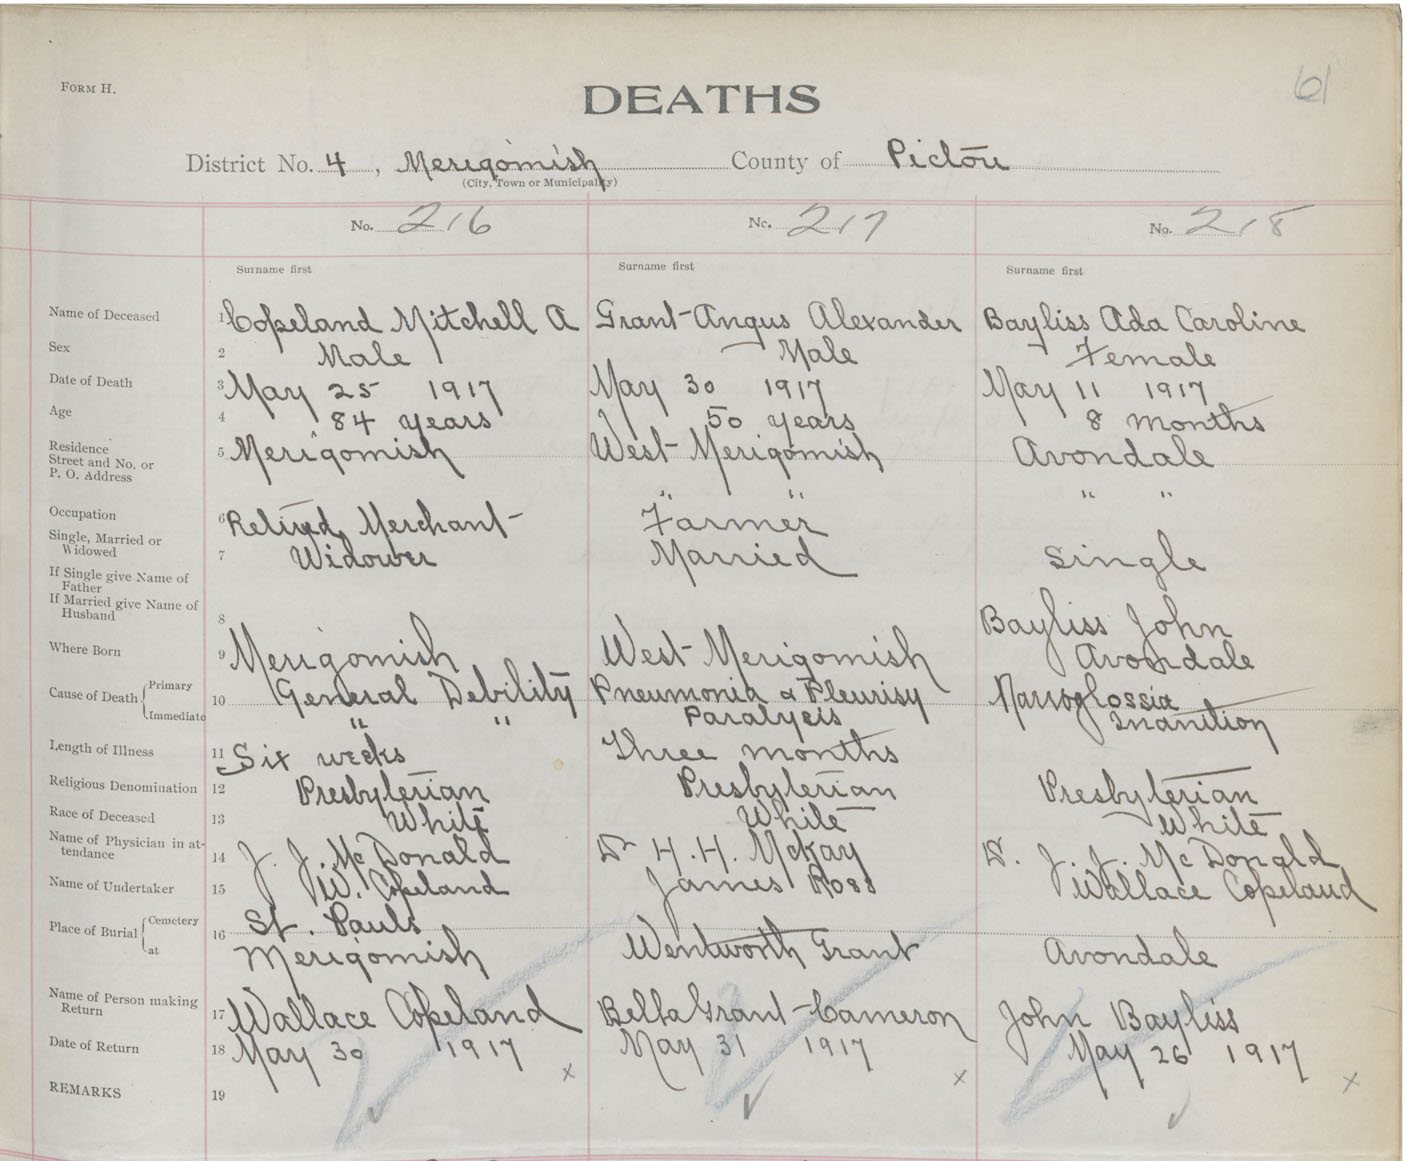 61
FORM H.
DEATHS
District No. 4, Merigomish County of Pictou
(City, Town or Municipality)
No. 216 No. 217 No. 218
Surname first Surname first Surname first
Name of Deceased 1 Copeland Mitchell A Grant Angus Alexander Bayliss Ada Caroline
Sex 2 Male Male Female
Date of Death 3 May 25 1917 May 30 1917 May 11 1917
Age 4 84 years 50 years 8 months
Residence
Street and No. or
P. O. Address 5 Merigomish West Merigomish Avondale
" " " "
Occupation 6 Retired Merchant Farmer
Single, Married or
Widowed 7 Widower Married Single
If Single give Name of
Father
If Married give Name of
Husband 8 Bayliss John
Where Born 9 Merigomish West Merigomish Avondale
Cause of Death Primary 10 General Debility Pneumonia & Pleurisy
Immediate " " Paralysis Inanition
Length of Illness 11 Six weeks Three months
Religious Denomination 12 Presbyterian Presbyterian Presbyterian
Race of Deceased 13 White White White
Name of Physician in at-
tendance 14 J. J. McDonald Dr H. H. McKay D. J. J. McDonald
Name of Undertaker 15 W. Copeland James Ross Wallace Copeland
Place of Burial Cemetery 16 St. Pauls
at Merigomish Wentworth Grant Avondale
Name of Person making
Return 17 Wallace Copeland Bella Grant-Cameron John Bayliss
Date of Return 18 May 30 1917 May 31 1917 May 26 1917
x x x
REMARKS 19